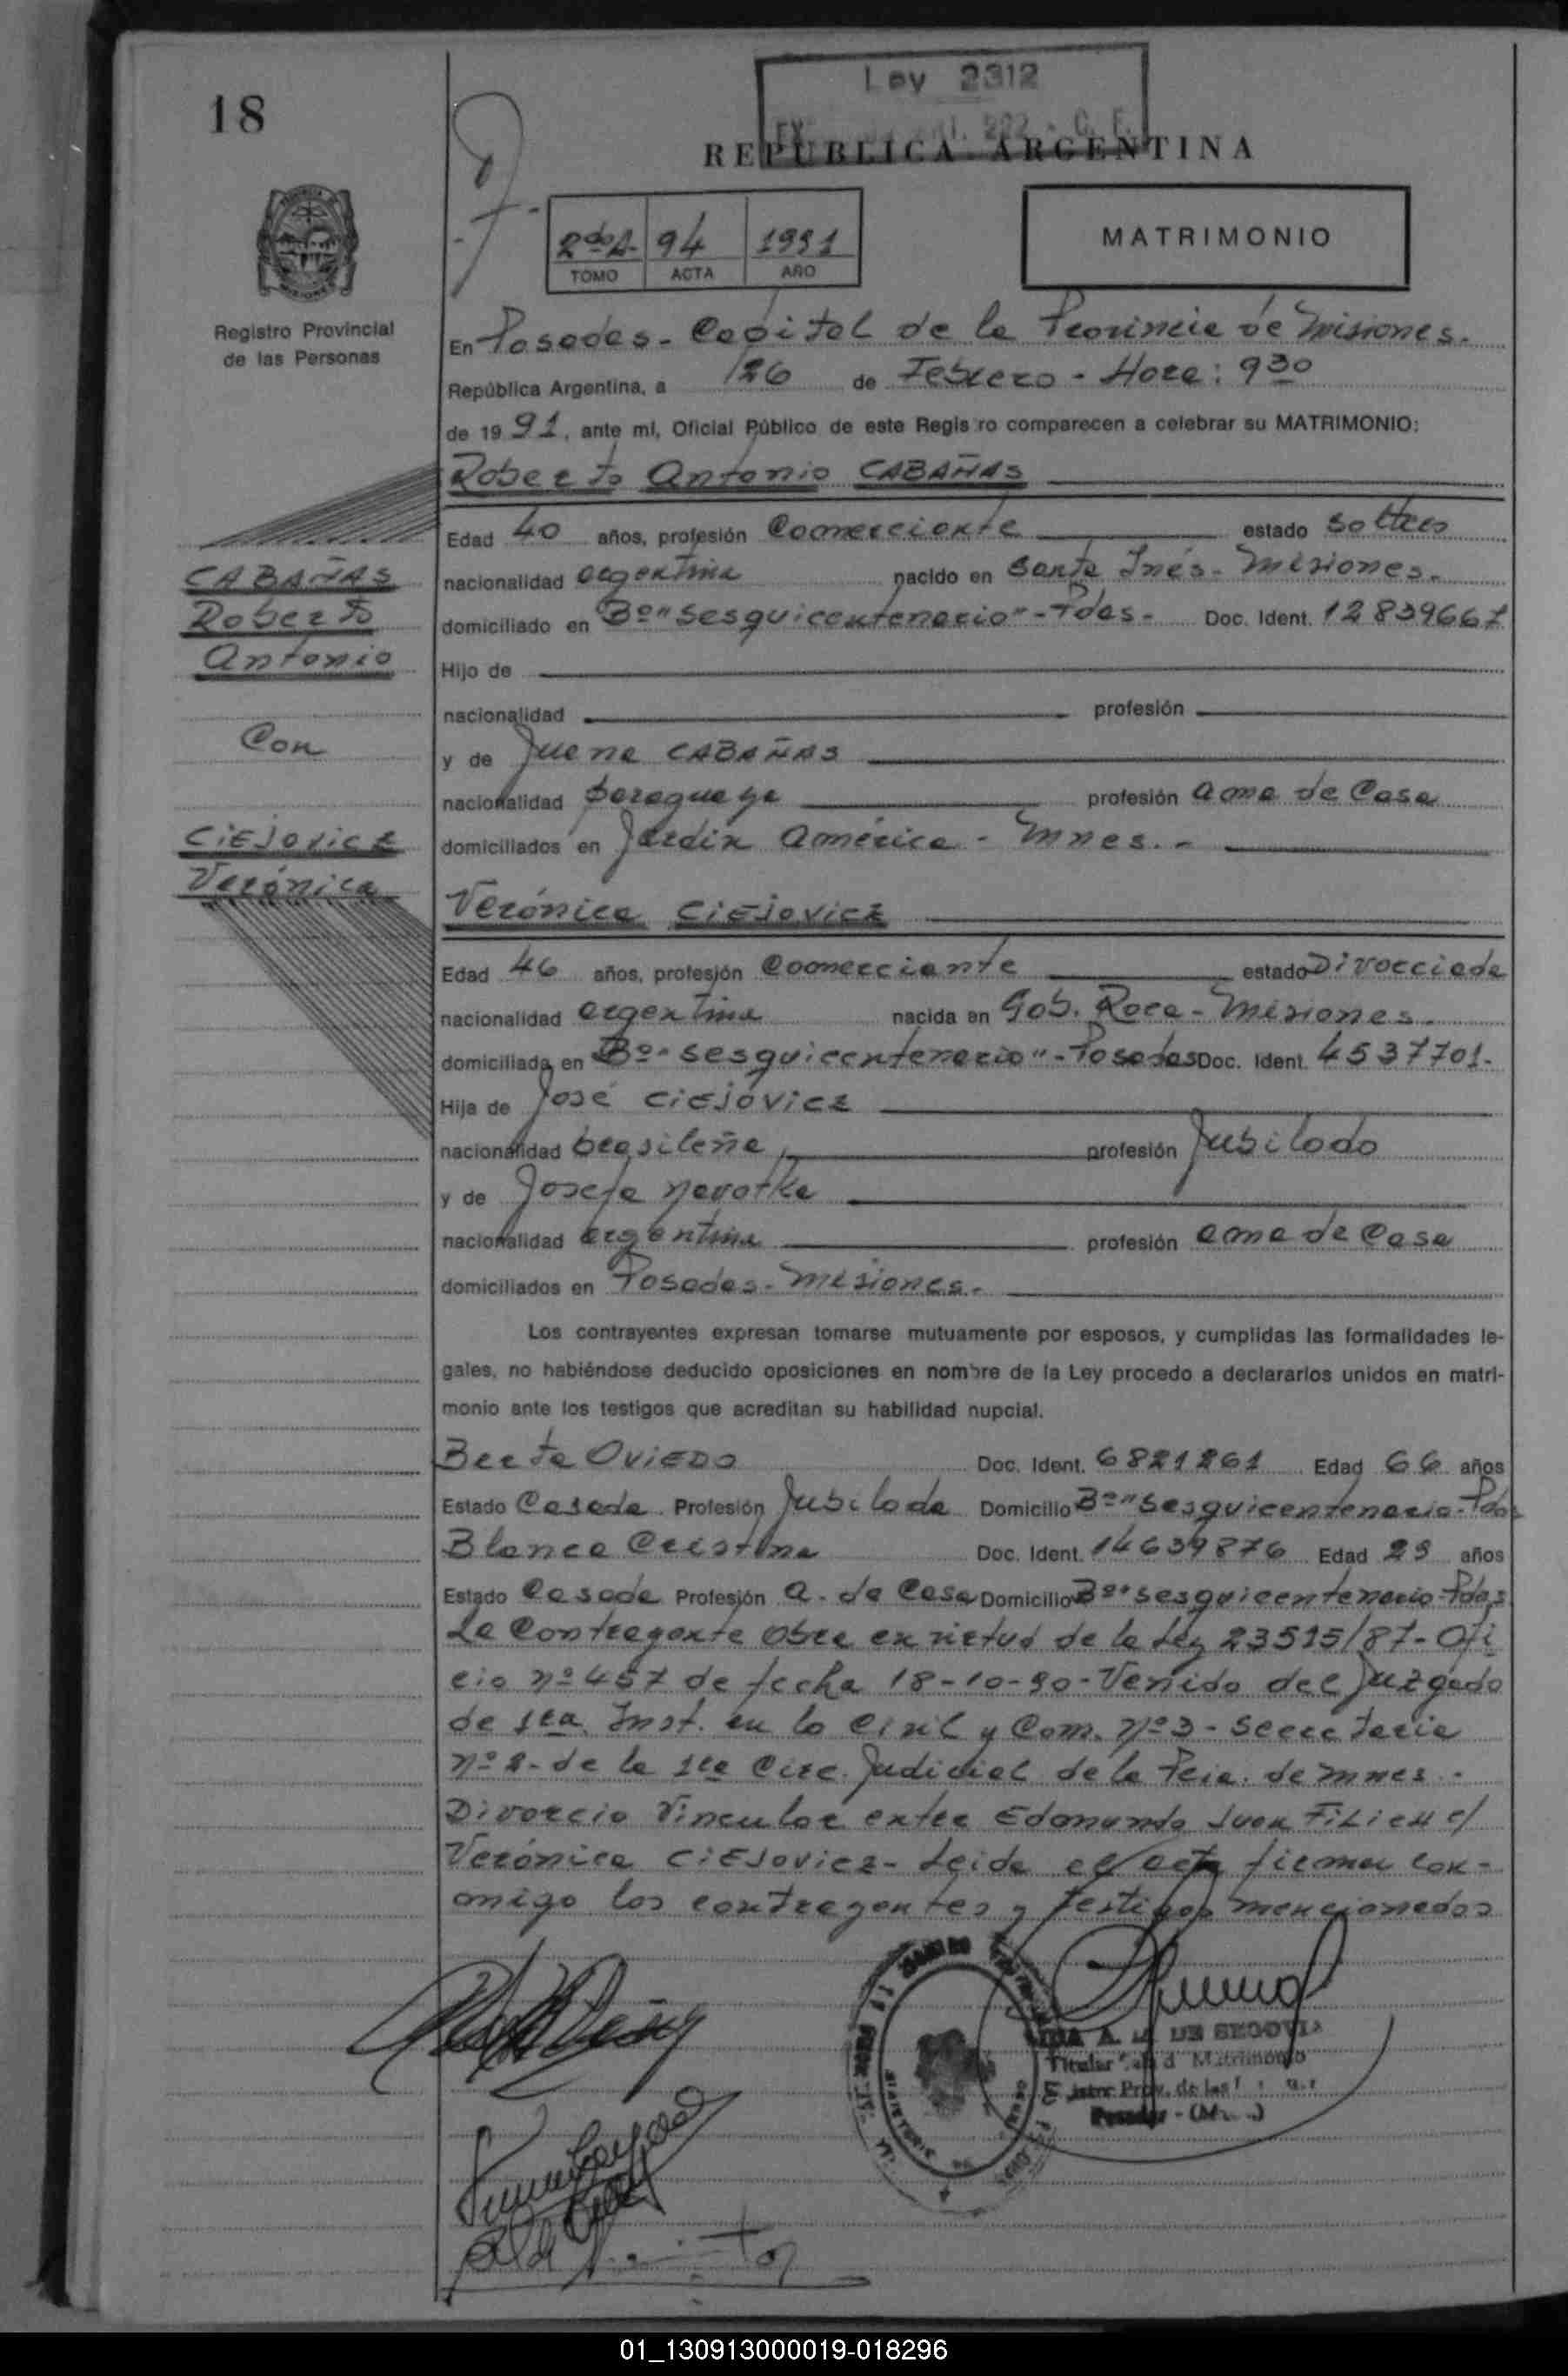 18
Ley 2312
REPUBLICA ARGENTINA
2do A 94 1991
TOMO ACTA AÑO
MATRIMONIO
Registro Provincial
de las Personas
En Posadas - Capital de la Provincia de Misiones.
República Argentina, a 26 de Febrero - Hora: 930
de 1991, ante mi, Oficial Público de este Registro comparecen a celebrar su MATRIMONIO:
Roberto Antonio CABAÑAS
Edad 40 años, profesión Comerciante estado soltero
CABAÑAS
nacionalidad argentina nacido en Santa Inés - Misiones.
Roberto
domiciliado en Bº "Sesquicentenario" - Pdas - Doc. Ident. 12839667
Antonio
Hijo de
nacionalidad profesión
Con
y de Juana CABAÑAS
nacionalidad paraguaya profesión ama de Casa
CIEJOVICZ
domiciliados en Jardín América - Mnes. -
Verónica
Verónica CIEJOVICZ
Edad 46 años, profesión Comerciante estado Divorciada
nacionalidad argentina nacida en Gob. Roca - Misiones.
domiciliada en Bº "Sesquicentenario" - Posadas Doc. Ident. 4537701-
Hija de José CIEJÓVICZ
nacionalidad brasileña profesión Jubilado
y de Josefa
nacionalidad argentina profesión ama de Casa
domiciliados en Posadas - Misiones. -
Los contrayentes expresan tomarse mutuamente por esposos, y cumplidas las formalidades le-
gales, no habiéndose deducido oposiciones en nombre de la Ley procedo a declararlos unidos en matri-
monio ante los testigos que acreditan su habilidad nupcial.
Berta OVIEDO Doc. Ident. 6821261 Edad 66 años
Estado Casada Profesión Jubilada Domicilio Bº "Sesquicentenario - Pdas
Blanca Cristina Doc. Ident. 14639876 Edad 29 años
Estado Casada Profesión A. de Casa Domicilio Bº "Sesquicentenario - Pdas
La Contrayente Obra en virtud de la Ley 23515/87 - Ofi
cio nº 457 de fecha 18-10-90 - Venido del Juzgado
de 1ra Inst. en lo Civil y Com. Nº 3 - Secretaria
nº 2 - de la 1ra Circ. Judicial de la Pcia. de Mnes. -
Divorcio Vincular entre Edmundo Juan c/
Verónica CIEJOVICZ - Leida el acta firman con-
migo los contrayentes y testigos mencionados
A. DE SEGOVIA
Titular Matrimonio
Prov. de las
Posadas -
01_130913000019-018296